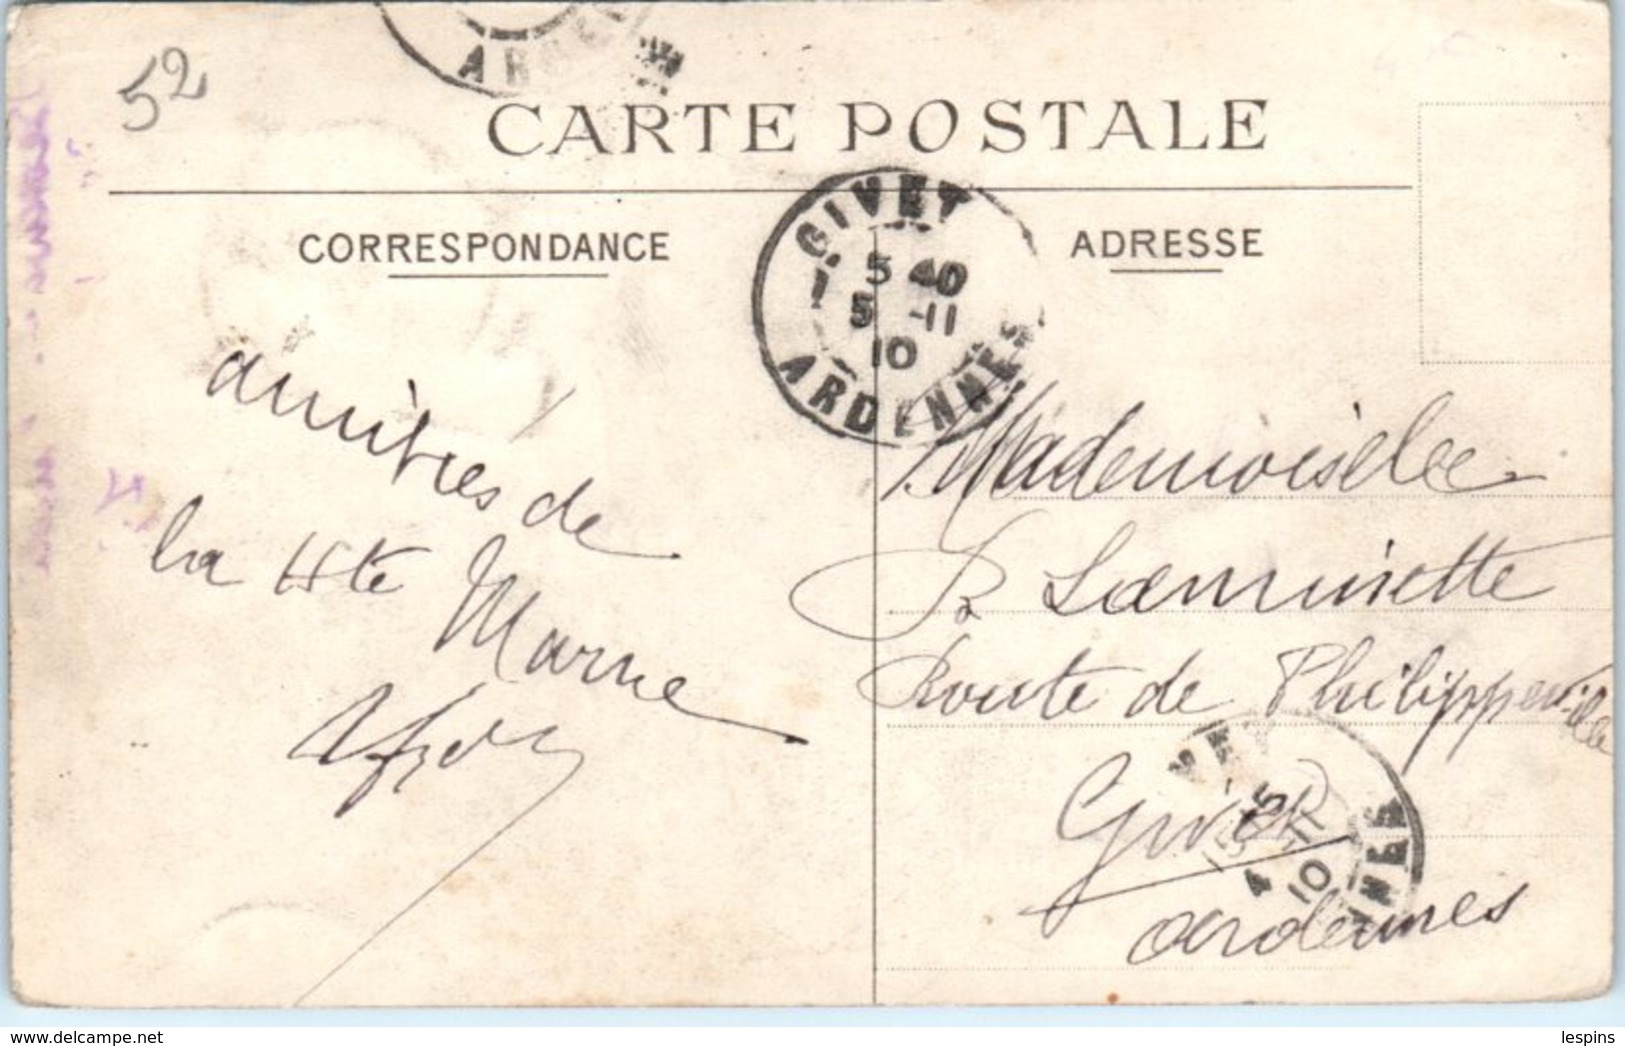 52
CARTE POSTALE
CORRESPONDANCE
ADRESSE
GIVET
5 40
5 -11
10
ARDENNES
amitiés de
la Hte Marne
Mademoiselle
Laminette
Route de Philippeville
Givet
Ardennes
4 -11
10
lespins